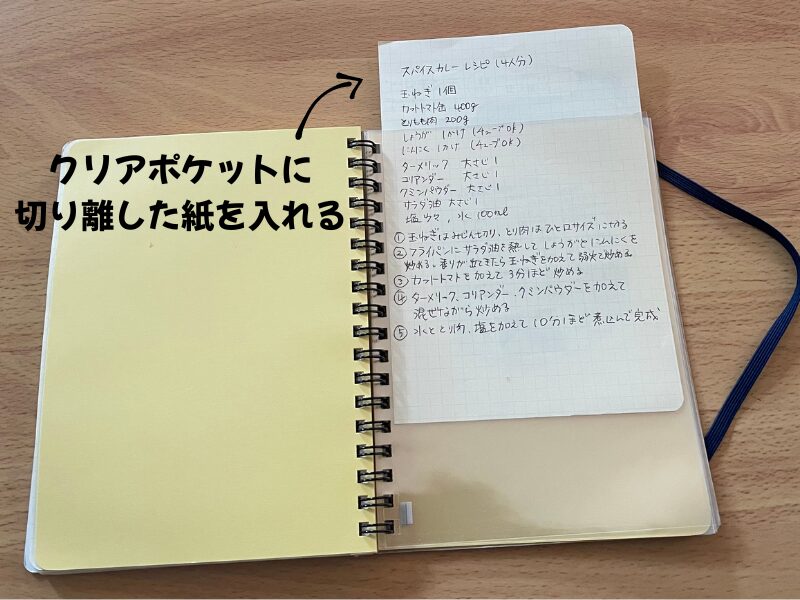 クリアポケットに
切り離した紙を入れる
スパイスカレー レシピ (4人分)
玉ねぎ 1個
カットトマト缶 400g
とりもも肉 200g
しょうが 1かけ (チューブOK)
にんにく 1かけ (チューブOK)
ターメリック 大さじ1
コリアンダー 大さじ1
クミンパウダー 大さじ1
サラダ油 大さじ1
塩 少々、水 100ml
① 玉ねぎはみじん切り、とり肉はひと口サイズに切る
② フライパンにサラダ油を熱して しょうがとにんにくを
炒める。香りが出てきたら玉ねぎを加えて弱火で炒める
③ カットトマトを加えて 3分ほど 炒める
④ ターメリック、コリアンダー、クミンパウダーを加えて
混ぜながら 炒める
⑤ 水ととり肉、塩を加えて 10分ほど 煮込んで完成